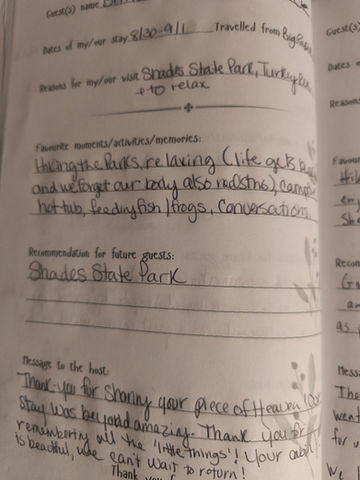 Guest(s) name
Dates of my/our stay 8/30-9/1 Travelled from
Reasons for my/our visit Shades State Park, Turkey
+ to relax
Favourite moments/activities/memories:
Hiking the Parks, relaxing (life gets
and we forget our body also needs this),
hot tub, feeding fish/frogs, conversations,
Recommendation for future guests:
Shades State Park
Message to the host:
Thank-you for sharing your piece of Heaven!
stay was beyond amazing. Thank you for
remembering all the 'little things'! Your cabin
is beautiful, we can't wait to return!
Thank you